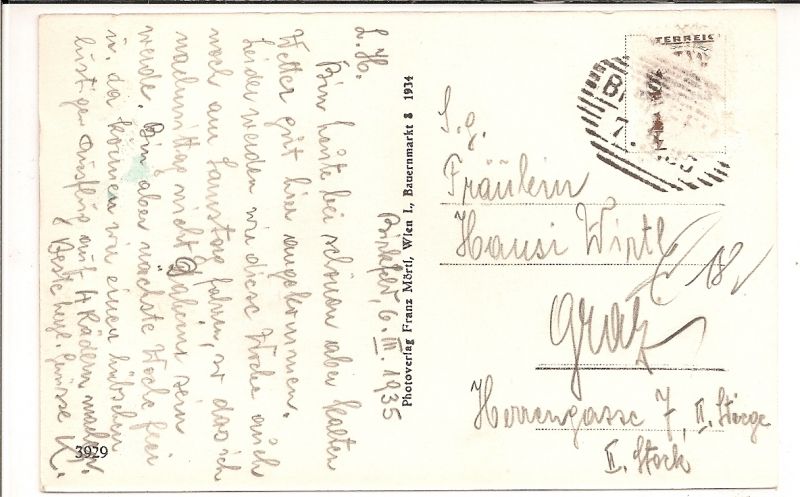 Birkfeld, 6. III. 1935
L. H.
Bin heute bei schönem aber kalten
Wetter gut hier angekommen.
Leider werden wir diese Woche auch
noch am Samstag fahren, so das ich
nachmittag nicht Daheim sein
werde. Bin aber nächste Woche frei
u. da können wir einen hübschen
lustigen Ausflug auf 4 Rädern machen.
Beste Grüsse K.
3929
Photoverlag Franz Mörtl, Wien I., Bauernmarkt 8 1934
TERREIC
S. g.
Fräulein
Hansi Wirtl
Graz
Herrengasse 7, II. Stiege
II. Stock